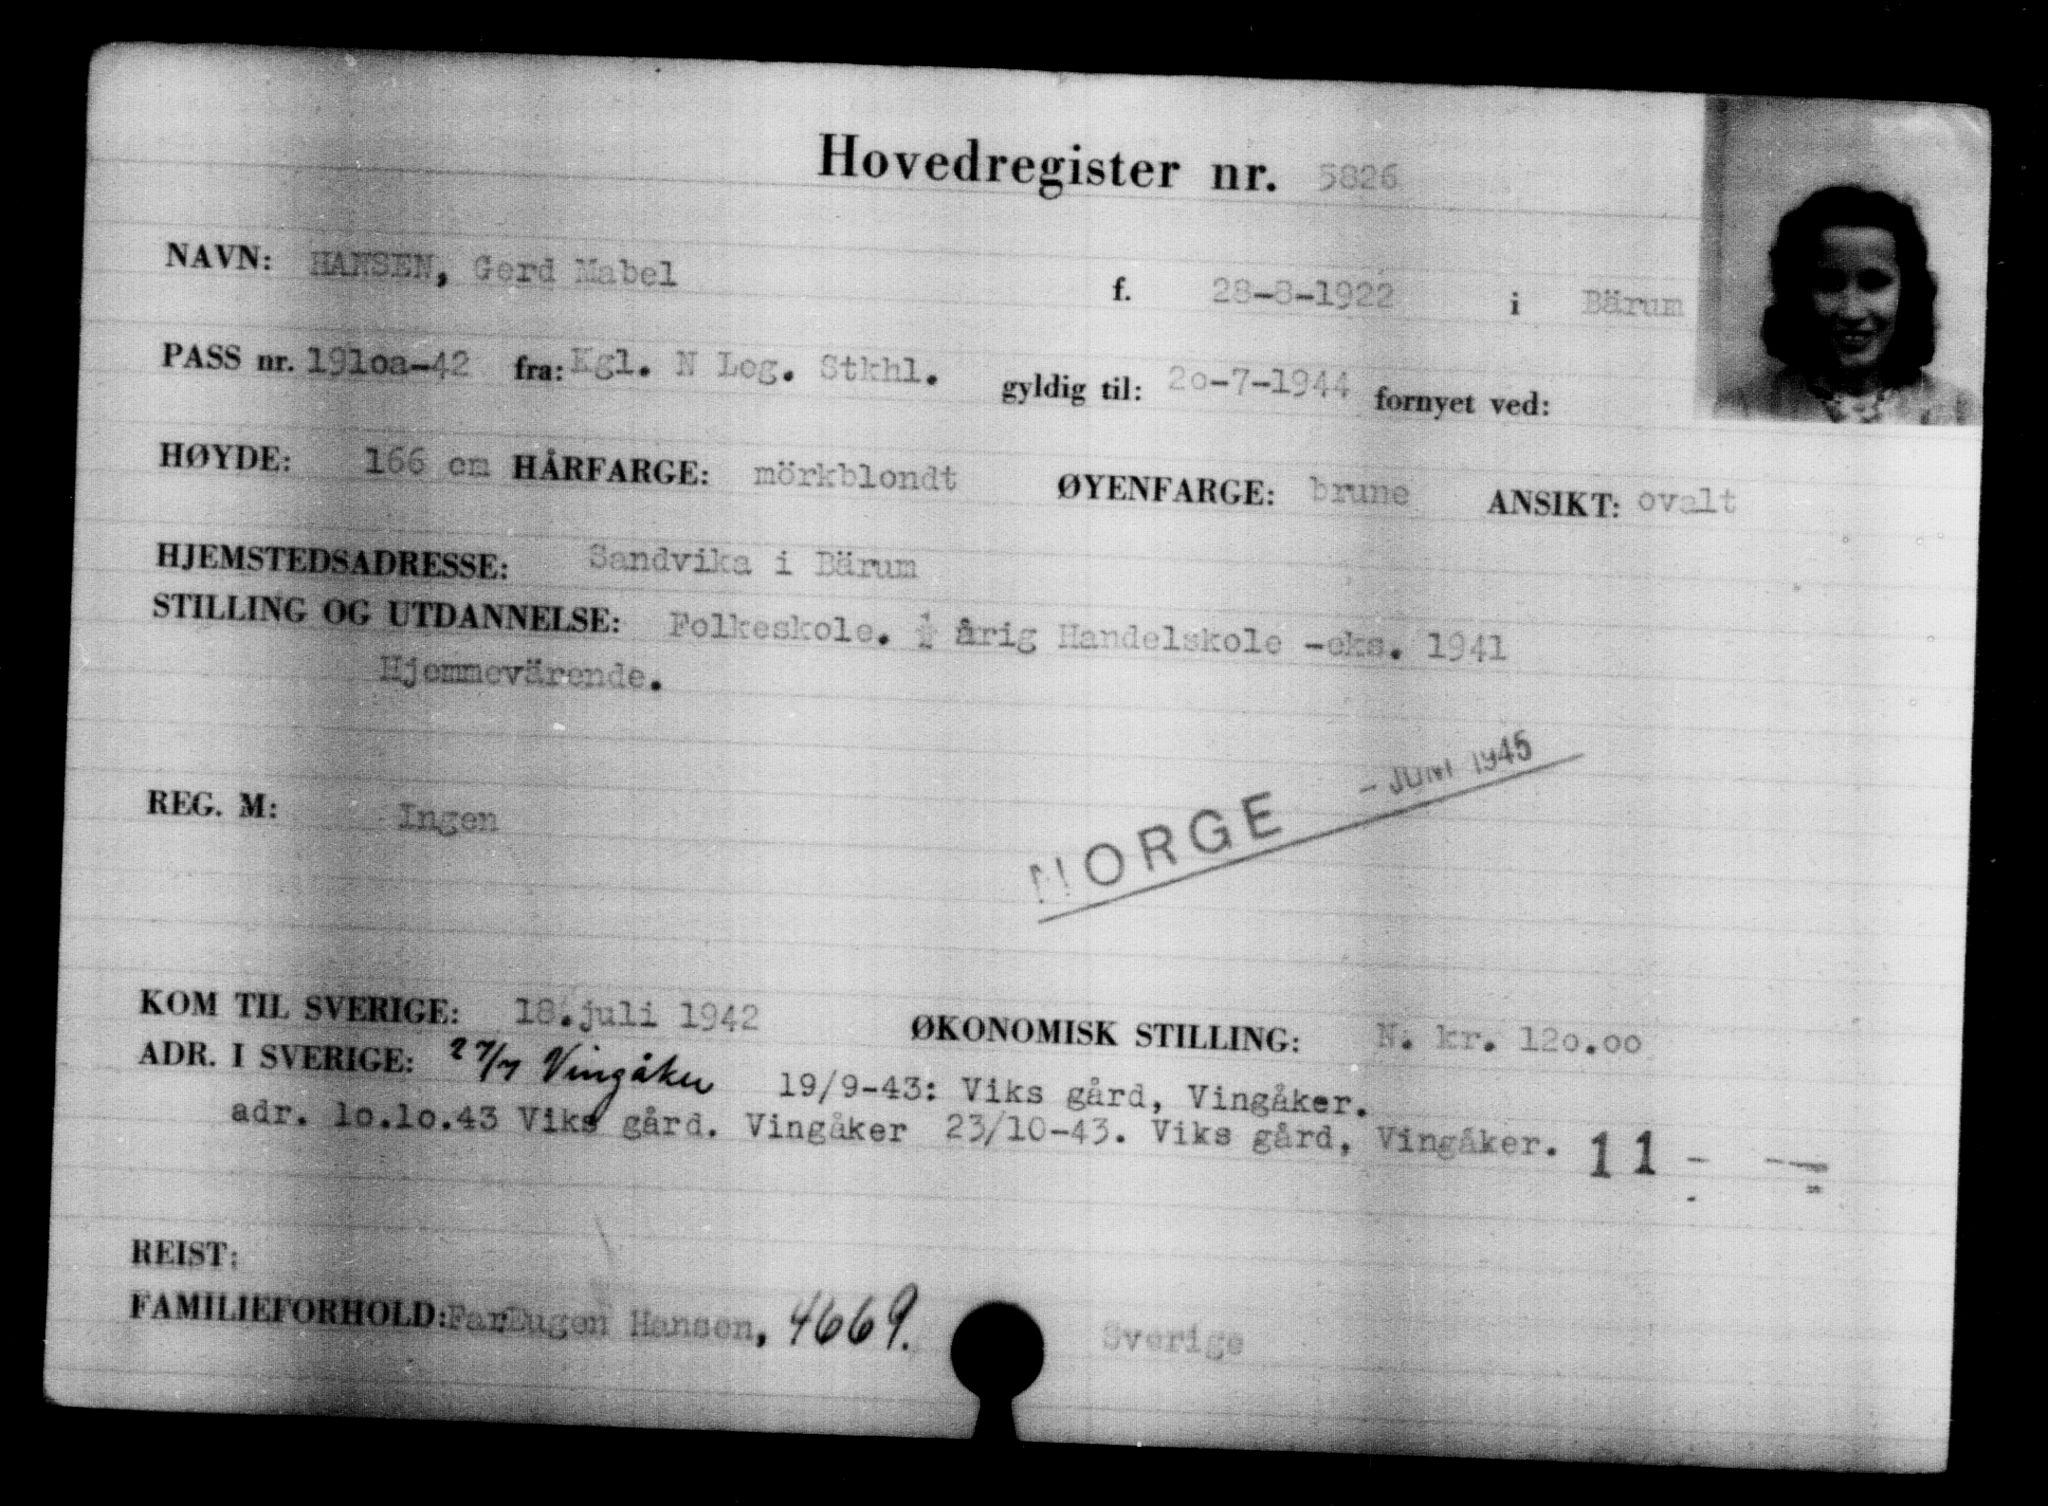 Hovedregister nr. 5826
NAVN: HANSEN, Gerd Mabel f. 28-8-1922 i Bärum
PASS nr. 191oa-42 fra: Kgl. N Leg. Stkhl. gyldig til: 2o-7-1944 fornyet ved:
HØYDE: 166 cm HÅRFARGE: mörkblondt ØYENFARGE: brune ANSIKT: ovalt
HJEMSTEDSADRESSE: Sandvika i Bärum
STILLING OG UTDANNELSE: Folkeskole. ½ årig Handelskole -eks. 1941
Hjemmevärende.
REG. M: Ingen
NORGE - JUNI 1945
KOM TIL SVERIGE: 18.juli 1942 ØKONOMISK STILLING: N. kr. 12o.oo
ADR. I SVERIGE: 27/7 Vingåker 19/9-43: Viks gård, Vingåker.
adr. 1o.1o.43 Viks gård. Vingåker 23/10-43. Viks gård, Vingåker. 11
REIST:
FAMILIEFORHOLD: Far: Eugen Hansen, 4669. Sverige